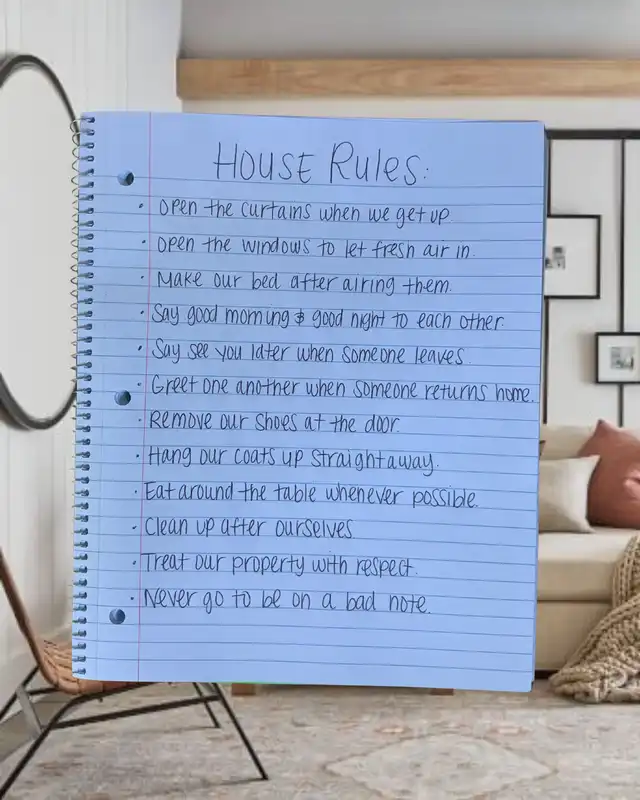 HOUSE RULES:
• Open the curtains when we get up.
• Open the windows to let fresh air in.
• Make our bed after airing them.
• Say good morning & good night to each other.
• Say see you later when someone leaves.
• Greet one another when someone returns home.
• Remove our shoes at the door.
• Hang our coats up straight away.
• Eat around the table whenever possible.
• Clean up after ourselves
• Treat our property with respect.
• Never go to be on a bad note.